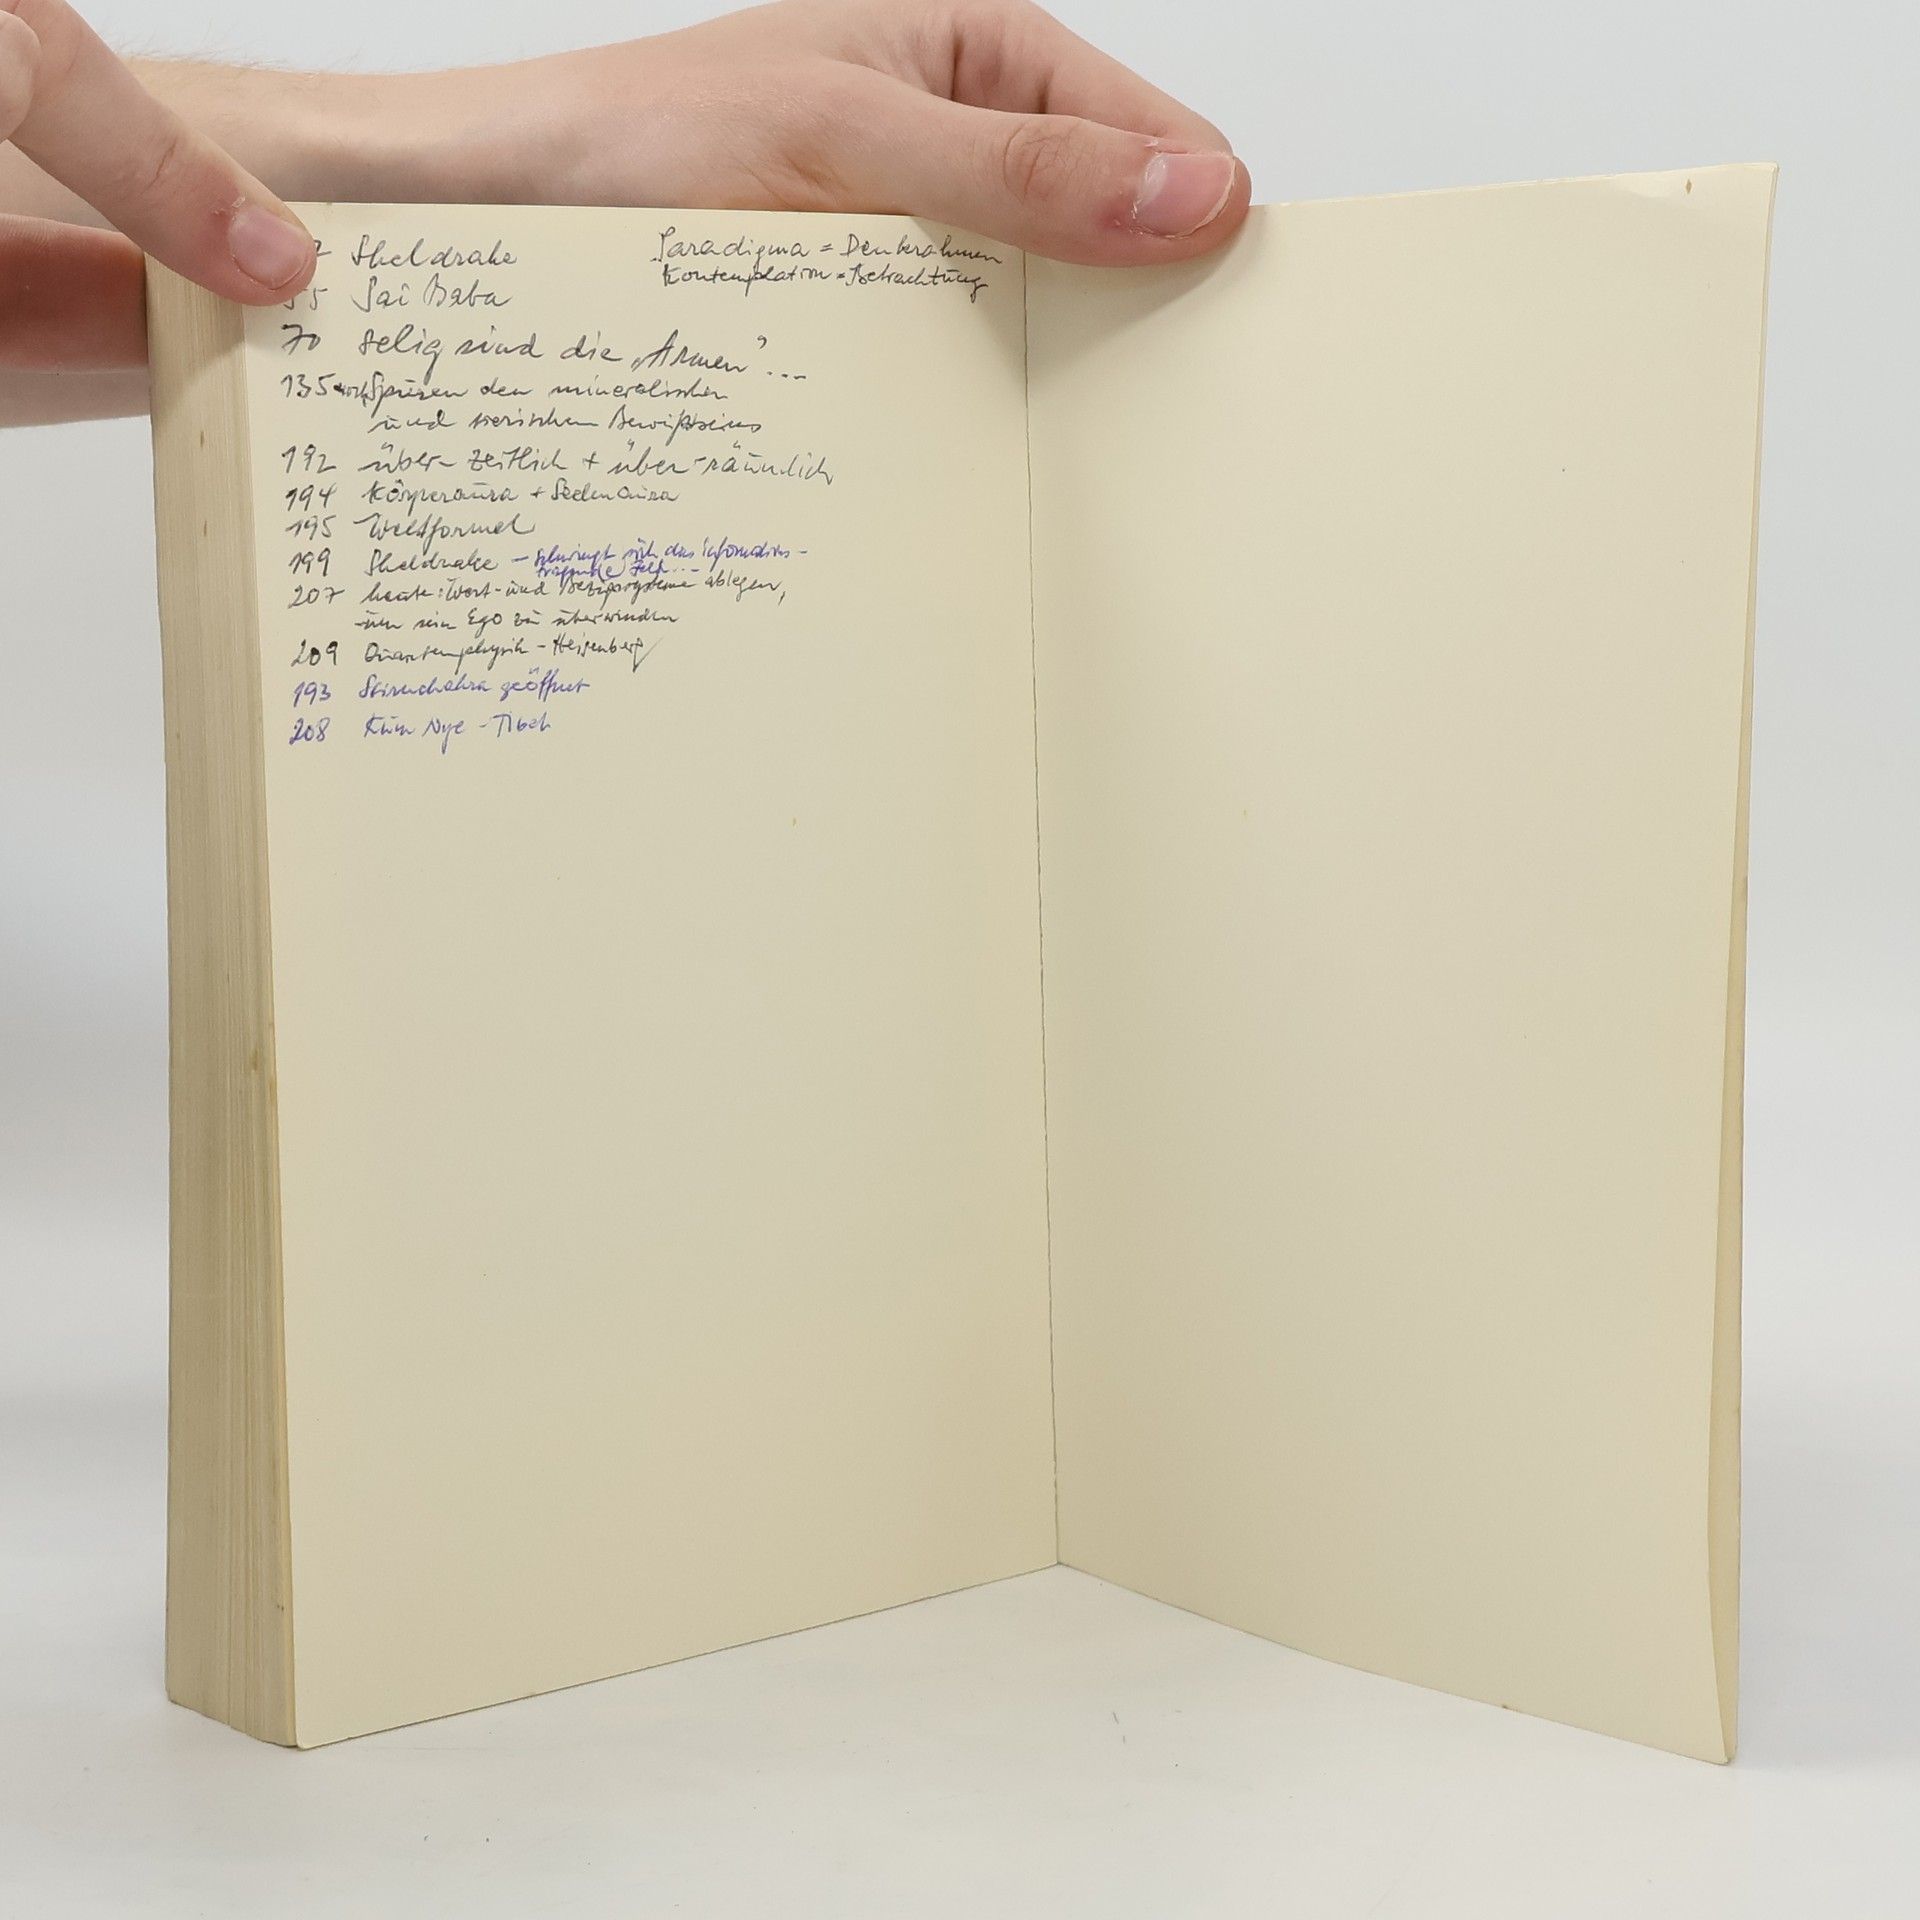 Sheldrake
Paradigma = Denkrahmen
Kontemplation = Betrachtung
55 Sai Baba
70 selig sind die „Armen" ...
135 Spuren den mineralischen
und tierischen Bewußtseins
192 über-zeitlich + über-räumlich
194 Körperaura + Seelenaura
195 Weltformel
199 Sheldrake – schwingt sich das informations-
tragende Feld ...
207 heute: Wert- und Bezugssysteme ablegen,
um sein Ego zu überwinden
209 Quantenphysik – Heisenberg
193 Stirnchakra geöffnet
208 Kum Nye – Tibet